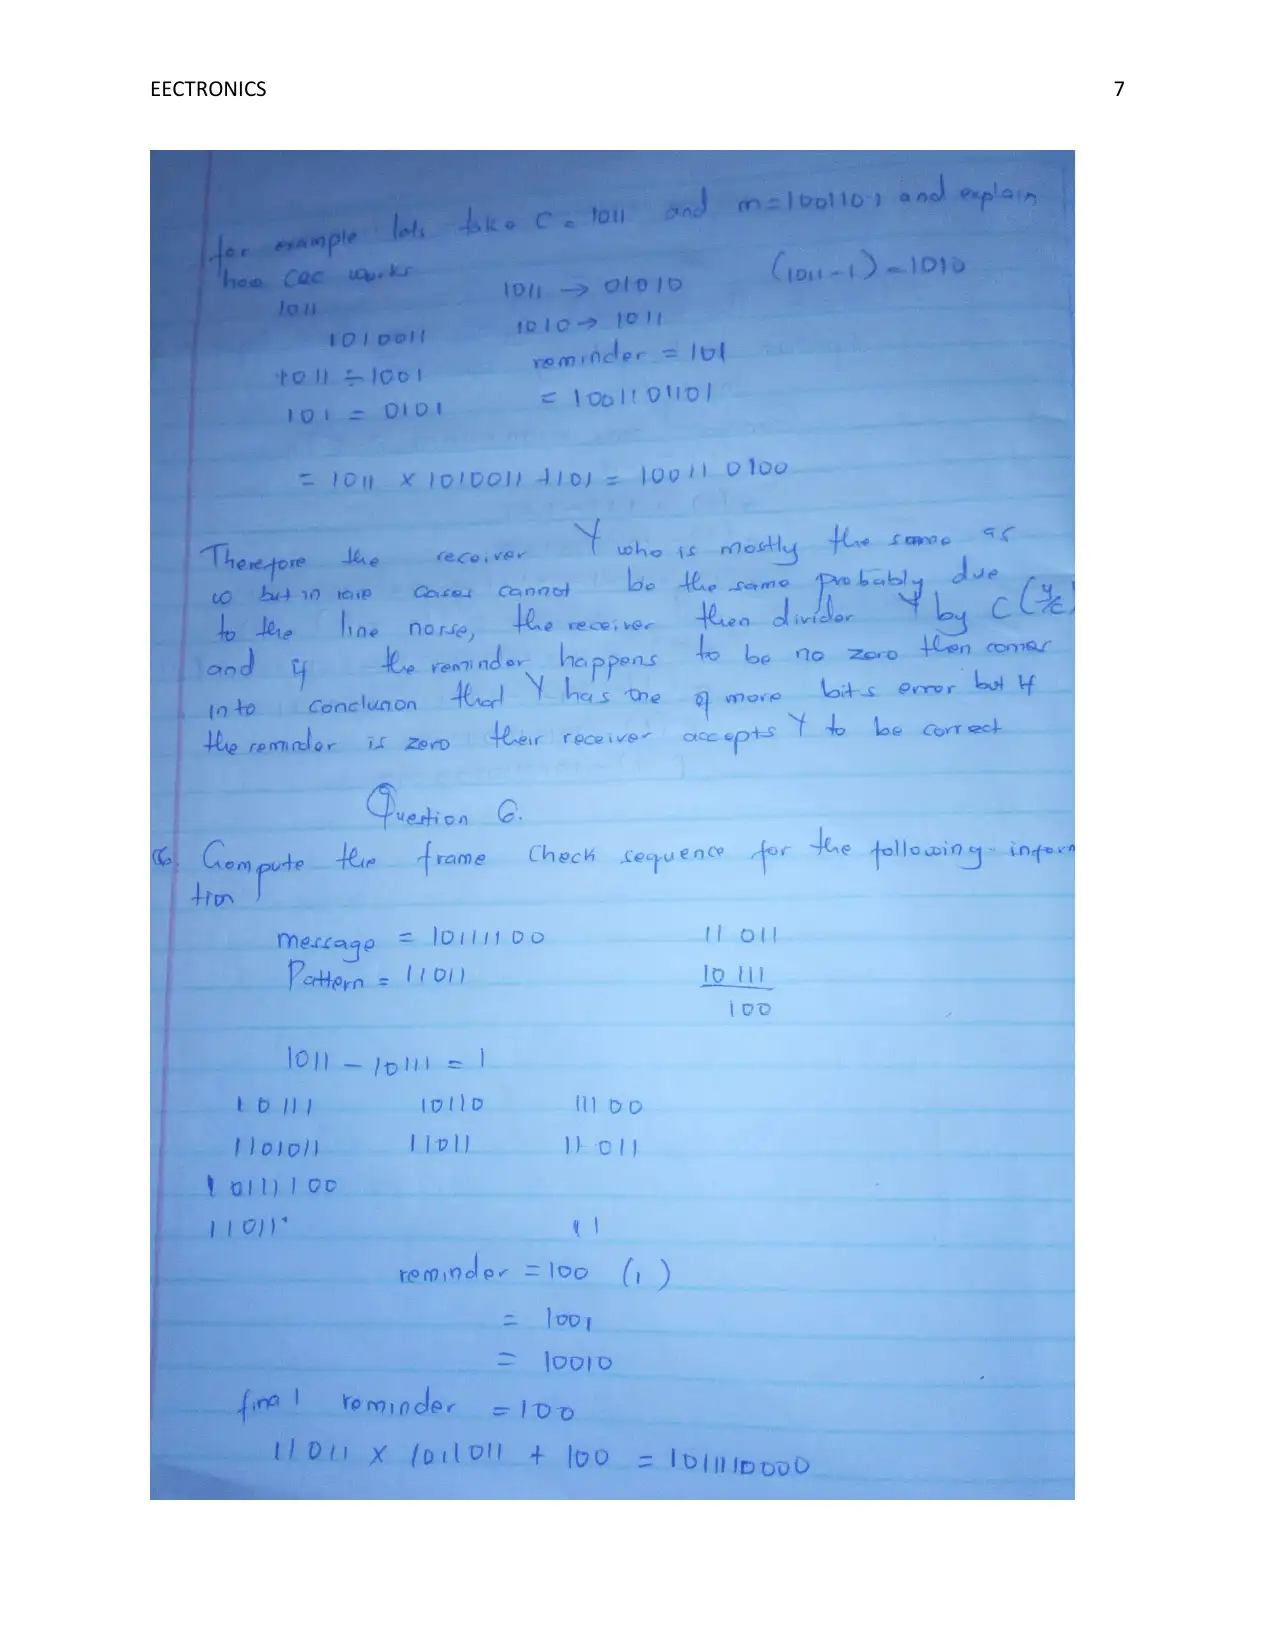 EECTRONICS 7
for example lets take C = 1011 and m=1001101 and explain
how CRC works
1011 1011 → 01010 (1011-1) = 1010
1010011 1010 → 1011
1011 ÷ 1001 reminder = 101
101 = 0101 = 10011 01101
= 1011 × 1010011 + 101 = 10011 0100
Therefore the receiver Y who is mostly the same as
w but in rare cases cannot be the same probably due
to the line norse, the receiver then divider Y by C (y/c)
and if the reminder happens to be no zero then comes
into conclusion that Y has one of more bits error but if
the reminder is zero their receiver accepts Y to be correct
Question 6.
Q6. Compute the frame Check sequence for the following inform
tion
message = 10111100 11 011
Pattern = 11011 10 111
100
1011 – 10111 = 1
10111 10110 111 00
1101011 11011 11 011
10111100
11011 11
reminder = 100 (1)
= 1001
= 10010
final reminder = 100
11011 × 1011011 + 100 = 1011110000